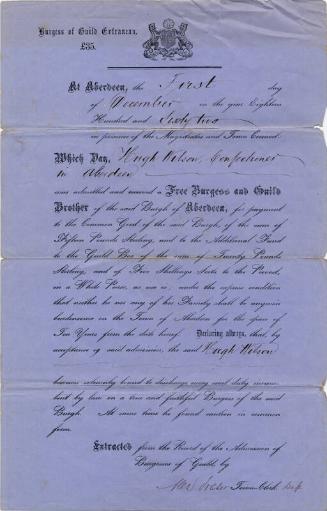 Burgess of Guild Extranean.
£35.
At Aberdeen, the First day
of December in the year Eighteen
Hundred and Sixty two
in presence of the Magistrates and Town Council.
Which Day, Hugh Wilson, Confectioner
in Aberdeen
was admitted and received a Free Burgess and Guild
Brother of the said Burgh of Aberdeen, for payment
to the Common Good of the said Burgh, of the sum of
Fifteen Pounds Sterling, and to the Additional Fund
to the Guild Box of the sum of Twenty Pounds
Sterling, and of Five Shillings Scots to the Provost,
in a White Purse, as use is; under the express condition
that neither he nor any of his Family shall be
in the Town of Aberdeen for the space of
Ten Years from the date hereof. Declaring always, that by
acceptance of said admission, the said Hugh Wilson
became solemnly bound to discharge every civil duty incum-
bent by law on a true and faithful Burgess of the said
Burgh. At same time he found caution in common
form.
Extracted from the Record of the Admission of
Burgesses of Guild, by
Town Clerk Dep